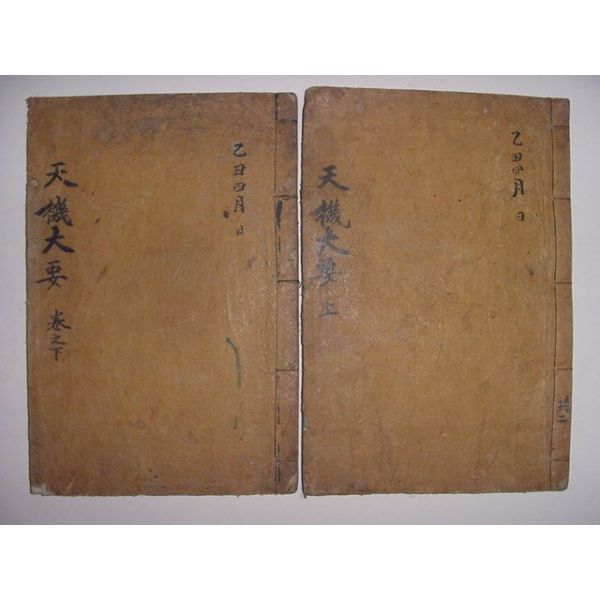 乙丑四月 日
天機大要 上
共二
乙丑四月 日
天機大要 卷之下